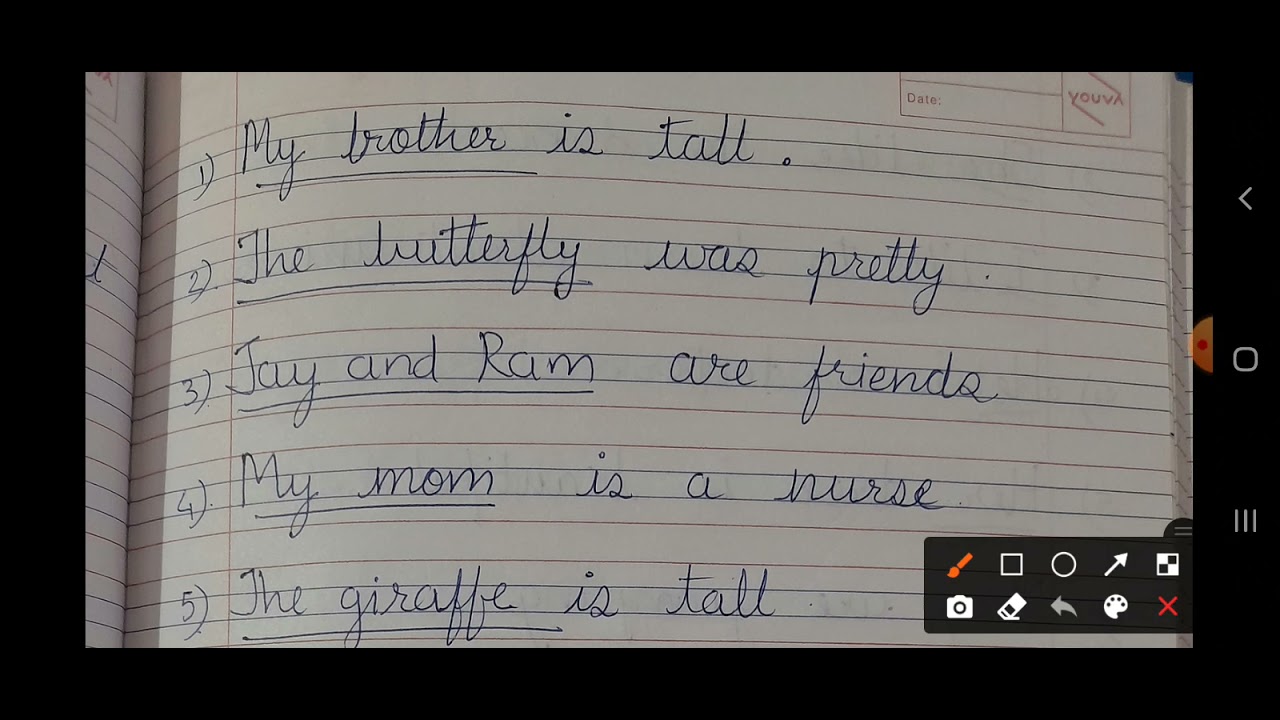 Date:
YOUVA
1) My brother is tall.
2). The butterfly was pretty.
3). Jay and Ram are friends
4). My mom is a nurse.
5) The giraffe is tall.